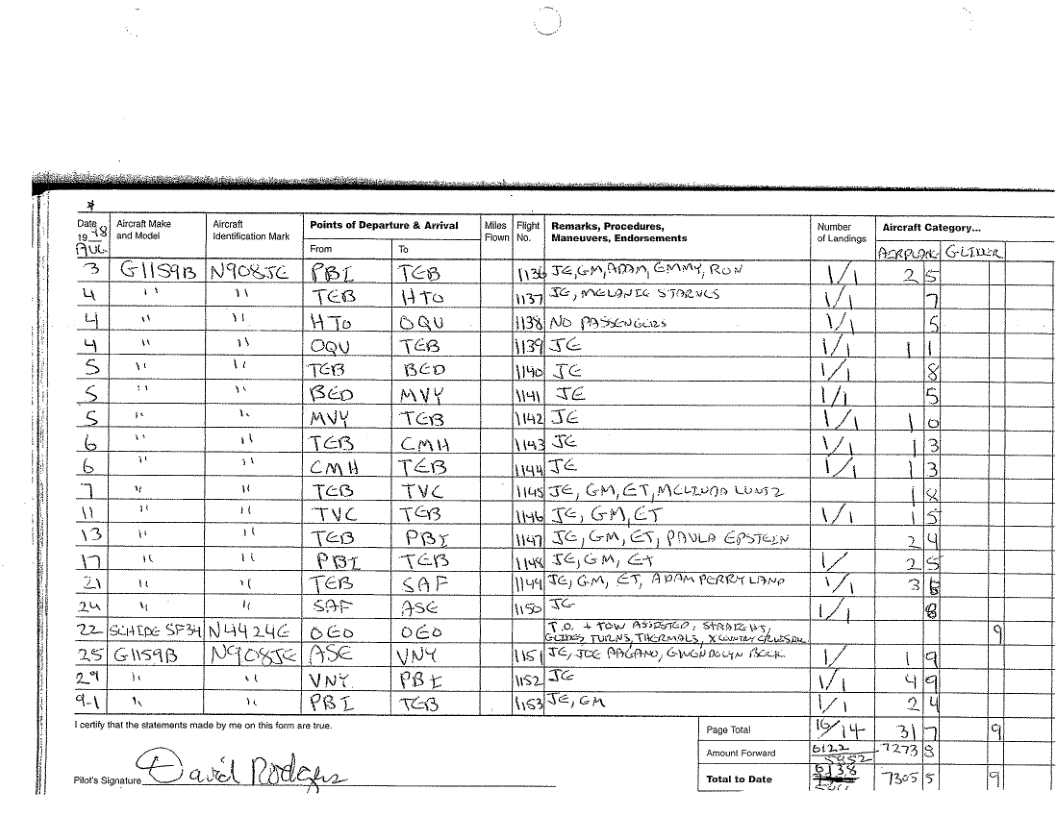 *
Date Aircraft Make Aircraft Points of Departure & Arrival Miles Flight Remarks, Procedures, Number Aircraft Category...
19 98 and Model Identification Mark From To Flown No. Maneuvers, Endorsements of Landings
AUG AIRPLANE GLIDER
3 G1159B N908JE PBI TEB 1136 JE, GM, ADAM, EMMY, RON 1/1 2 5
4 " " TEB HTO 1137 JE, MELANIE STARNES 1/1 7
4 " " HTO OQU 1138 NO PASSENGERS 1/1 5
4 " " OQU TEB 1139 JE 1/1 1 1
5 " " TEB BED 1140 JE 1/1 8
5 " " BED MVY 1141 JE 1/1 5
5 " " MVY TEB 1142 JE 1/1 1 0
6 " " TEB CMH 1143 JE 1/1 1 3
6 " " CMH TEB 1144 JE 1/1 1 3
7 " " TEB TVC 1145 JE, GM, ET, MELINDA LUNTZ 1 8
11 " " TVC TEB 1146 JE, GM, ET 1/1 1 5
13 " " TEB PBI 1147 JE, GM, ET, PAULA EPSTEIN 2 4
17 " " PBI TEB 1148 JE, GM, ET 1/ 2 5
21 " " TEB SAF 1149 JE, GM, ET, ADAM PERRY LANG 1/1 3
24 " " SAF ASE 1150 JE 1/1 8
22 SF34 N4424E OEO OEO T.O. + TOW ASSISTED, STRAIGHT,
GLIDES, TURNS, THERMALS, X COUNTRY 9
25 G1159B N908JE ASE VNY 1151 JE, JOE PAGANO, GWENDOLYN BECK 1/ 1 9
29 " " VNY PBI 1152 JE 1/1 4 9
9-1 " " PBI TEB 1153 JE, GM 1/1 2 4
I certify that the statements made by me on this form are true.
Page Total 16/14 31 7 9
Amount Forward 6122 5852 7273 8
Pilot's Signature David Rodgers
Total to Date 6138 7305 5 9